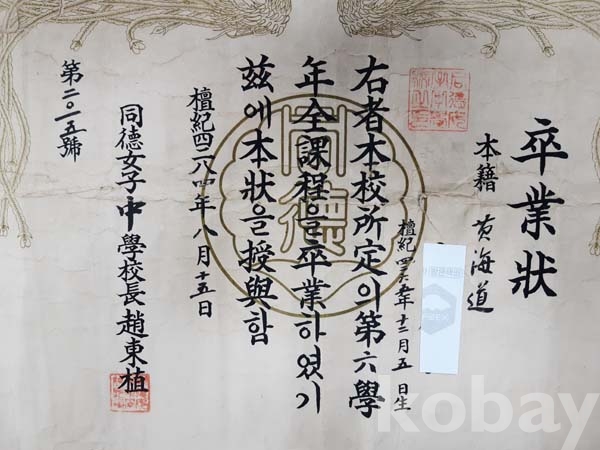 卒業狀
本籍 黃海道
檀紀四二六五年十二月五日生
右者本校所定의第六學
年全課程을卒業하였기
玆에本狀을授與함
檀紀四二八四年八月十五日
同德女子中學校長 趙東植
第二〇一五號
同德
kobay